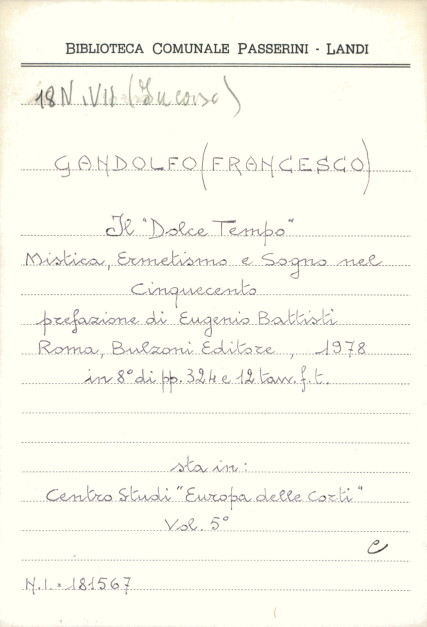 BIBLIOTECA COMUNALE PASSERINI - LANDI
18 N. VII (In corso)
GANDOLFO (FRANCESCO)
Il "Dolce Tempo"
Mistica, Ermetismo e Sogno nel
Cinquecento
prefazione di Eugenio Battisti
Roma, Bulzoni Editore, 1978
in 8° di pp. 324 e 12 tavv. f. t.
sta in:
Centro Studi "Europa delle Corti"
Vol. 5°
e
N.I. = 181567